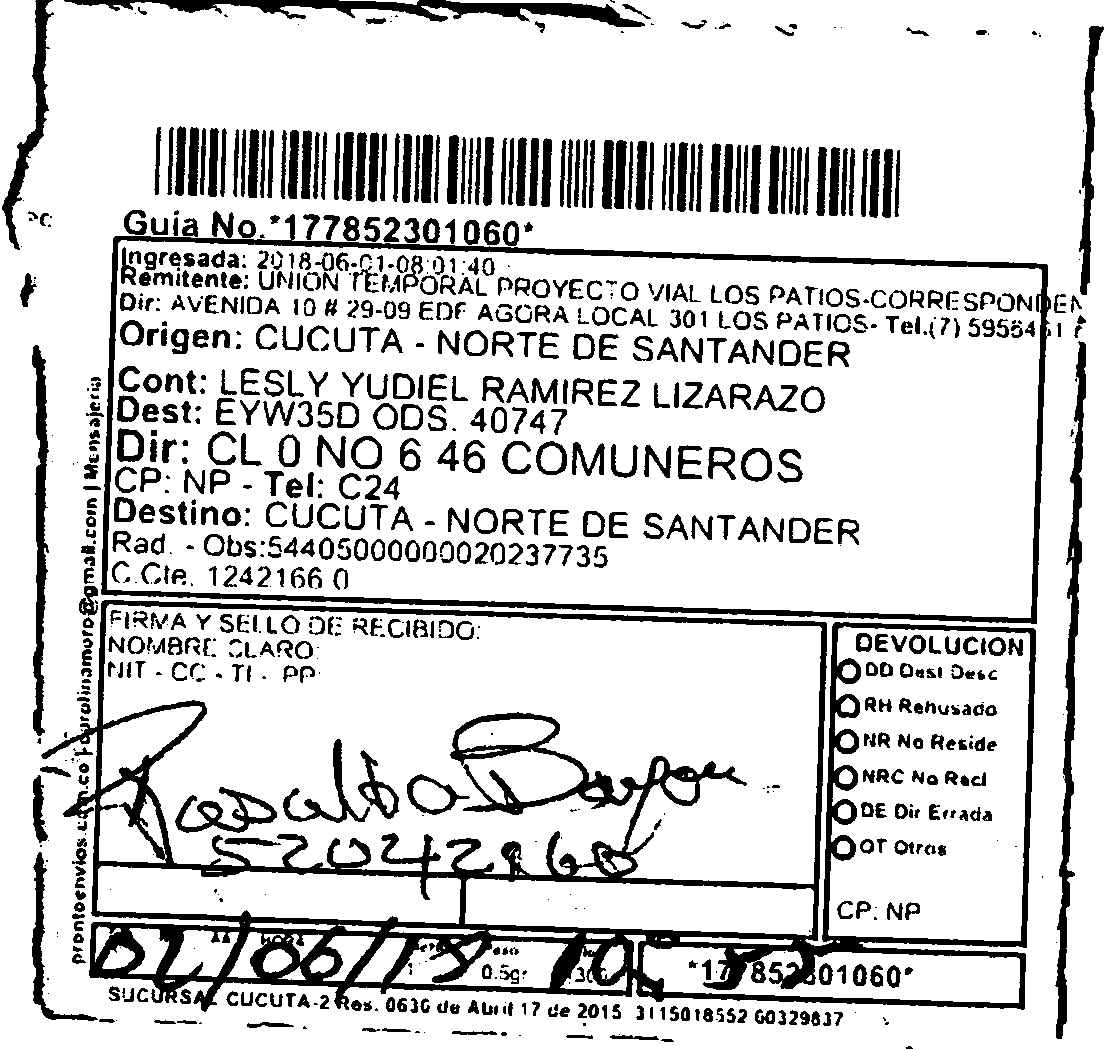 Guia No.*177852301060*
Ingresada: 2018-06-01-08:01:40
Remitente: UNION TEMPORAL PROYECTO VIAL LOS PATIOS-CORRESPONDEN
Dir: AVENIDA 10 # 29-09 EDF AGORA LOCAL 301 LOS PATIOS- Tel.(7)
Origen: CUCUTA - NORTE DE SANTANDER
Cont: LESLY YUDIEL RAMIREZ LIZARAZO
Dest: EYW35D ODS. 40747
Dir: CL 0 NO 6 46 COMUNEROS
CP: NP - Tel: C24
Destino: CUCUTA - NORTE DE SANTANDER
Rad. - Obs:54405000000020237735
C.Cte. 1242166 0
prontoenvios.com.co | carolinamoro@gmail.com | Mensajeria
FIRMA Y SELLO DE RECIBIDO:
NOMBRE CLARO:
NIT - CC - TI - PP:
DEVOLUCION
DD Dest Desc
RH Rehusado
NR No Reside
NRC No Recl
DE Dir Errada
OT Otros
CP: NP
02/06/18
0.5gr
*177852301060*
SUCURSAL CUCUTA-2 Res. 0636 de Abril 17 de 2015 3115018552 60329837